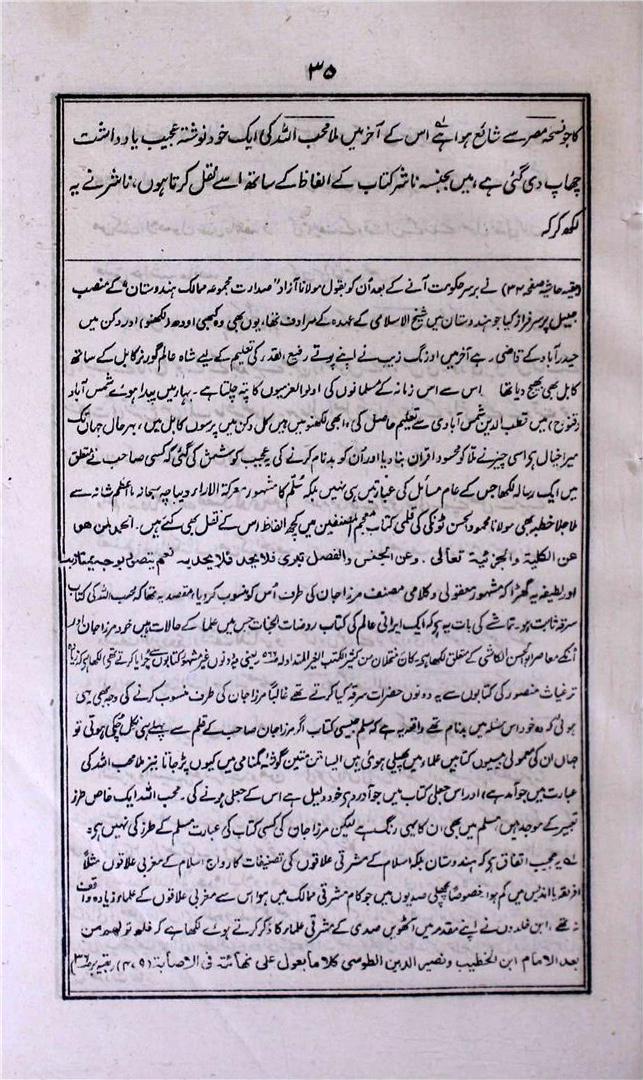 ۳۵
کا جو نسخہ مصر سے شائع ہوا ہے اس کے آخر میں ملا محب اللہ کی ایک خود نوشتہ عجیب یادداشت
چھاپ دی گئی ہے، میں بجنسہ ناشر کتاب کے الفاظ کے ساتھ اسے نقل کرتا ہوں، ناشر نے یہ
لکھ کر کہ
(بقیہ حاشیہ صفحہ ۳۴) نے برسر حکومت آنے کے بعد ان کو بقول مولانا آزاد "صدارت مجموعہ ممالک ہندوستان" کے منصب
جلیل پر سرفراز کیا جو ہندوستان میں شیخ الاسلامی کے عہدہ کے مرادف تھا، یوں بھی وہ کبھی اودھ (لکھنو) اور دکن میں
حیدرآباد کے قاضی رہے آخر میں اورنگ زیب نے اپنے پوتے رفیع القدر کی تعلیم کے لیے شاہ عالم گورنر کابل کے ساتھ
کابل بھی بھیج دیا تھا اس سے اس زمانہ کے مسلمانوں کی اولوالعزمیوں کا پتہ چلتا ہے۔ بہار میں پیدا ہوئے شمس آباد
(قنوج) میں قطب الدین شمس آبادی سے تعلیم حاصل کی، ابھی لکھنو میں ہیں کل دکن میں پرسوں کابل میں، بہر حال جہاں تک
میرا خیال ہے اسی چیز نے ملا کو محسود اقران بنا دیا اور ان کو بدنام کرنے کی یہ عجیب کوشش کی گئی کہ کسی صاحب نے منطق
میں ایک رسالہ لکھا جس کے عام مسائل کی عبارتیں ہی نہیں بلکہ سُلّم کا مشہور معرکۃ الآراء دیباچہ سبحانہ ما اعظم شانہ سے
ملا جلا خطبہ بھی مولانا محمود الحسن ٹونکی کی قلمی کتاب معجم المصنفین میں کچھ الفاظ اس کے نقل بھی کئے ہیں۔ الحمد لمن ھو
عن الکلیۃ والجزئیۃ تعالیٰ۔ وعن الجنس والفصل تبری فلا یحد فلا یحد بہ نعم یتصور بوجہ یمتاز بہ
اور لطیفہ یہ گھڑا کہ مشہور معقولی و کلامی مصنف مرزا جان کی طرف اس کو منسوب کر دیا، مقصد یہ تھا کہ محب اللہ کی کتاب
سرقہ ثابت ہو۔ تماشے کی بات یہ ہے کہ ایک ایرانی عالم کی کتاب روضات الجنات جس میں علماء کے حالات ہیں خود مرزا جان اور
انکے معاصر ابو الحسن الکاشی کے متعلق لکھا ہے کہ کان منتحلان من کثیر الکتب الغیر المتداولہ یعنی یہ دونوں غیر مشہور کتابوں سے چرایا کرتے تھے لکھا ہے کہ
غیاث منصور کی کتابوں سے یہ دونوں حضرات سرقہ کیا کرتے تھے غالباً مرزا جان کی طرف منسوب کرنے کی وجہ بھی یہی
ہوئی کہ وہ خود اس سلسلہ میں بدنام تھے واقعہ یہ ہے کہ سلم جیسی کتاب اگر مرزا جان صاحب کے قلم سے پہلے ہی نکل چکی ہوتی تو
جہاں ان کی معمولی بیسیوں کتابیں علماء میں پھیلی ہوئی ہیں ایسا متن متین گوشہ گمنامی میں کیوں پڑ جاتا نیز ملا محب اللہ کی
عبارت میں جو آمد ہے، اور اس جعلی کتاب میں جو آورد ہے خود دلیل ہے اس کے جعلی ہونے کی۔ محب اللہ ایک خاص طرز
تعبیر کے موجد ہیں، مسلم میں بھی ان کا یہی رنگ ہے لیکن مرزا جان کی کسی کتاب کی عبارت مسلم کے طرز کی نہیں ہے
یہ عجیب اتفاق ہے کہ ہندوستان بلکہ اسلام کے مشرقی علاقوں کی تصنیفات کا رواج اسلام کے مغربی علاقوں مثلاً
افریقہ یا اندلس میں کم ہوا، خصوصاً پچھلی صدیوں میں جو کام مشرقی ممالک میں ہوا اس سے مغربی علاقوں کے علماء زیادہ واقف
نہ تھے، ابن خلدون نے اپنے مقدمہ میں آٹھویں صدی کے مشرقی علماء کا ذکر کرتے ہوئے لکھا ہے کہ فلم نولھم من
بعد الامام ابن الخطیب ونصیر الدین الطوسی کلاما یعول علی نھائتہ فی الاصابۃ (۴۰۹) (بقیہ بر ۳۶)